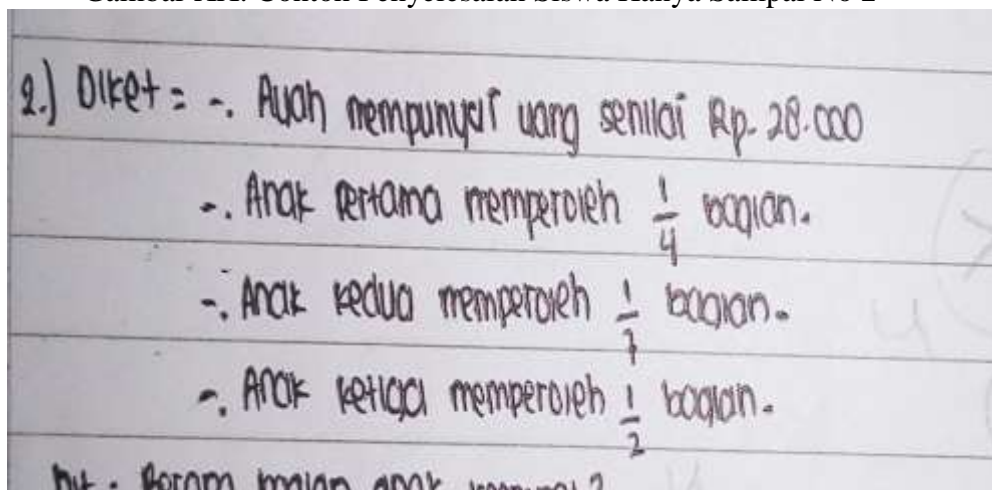 2.) Diket = -. Ayah mempunyai uang senilai Rp. 28.000
-. Anak pertama memperoleh 1/4 bagian.
-. Anak kedua memperoleh 1/7 bagian.
-. Anak ketiga memperoleh 1/2 bagian.